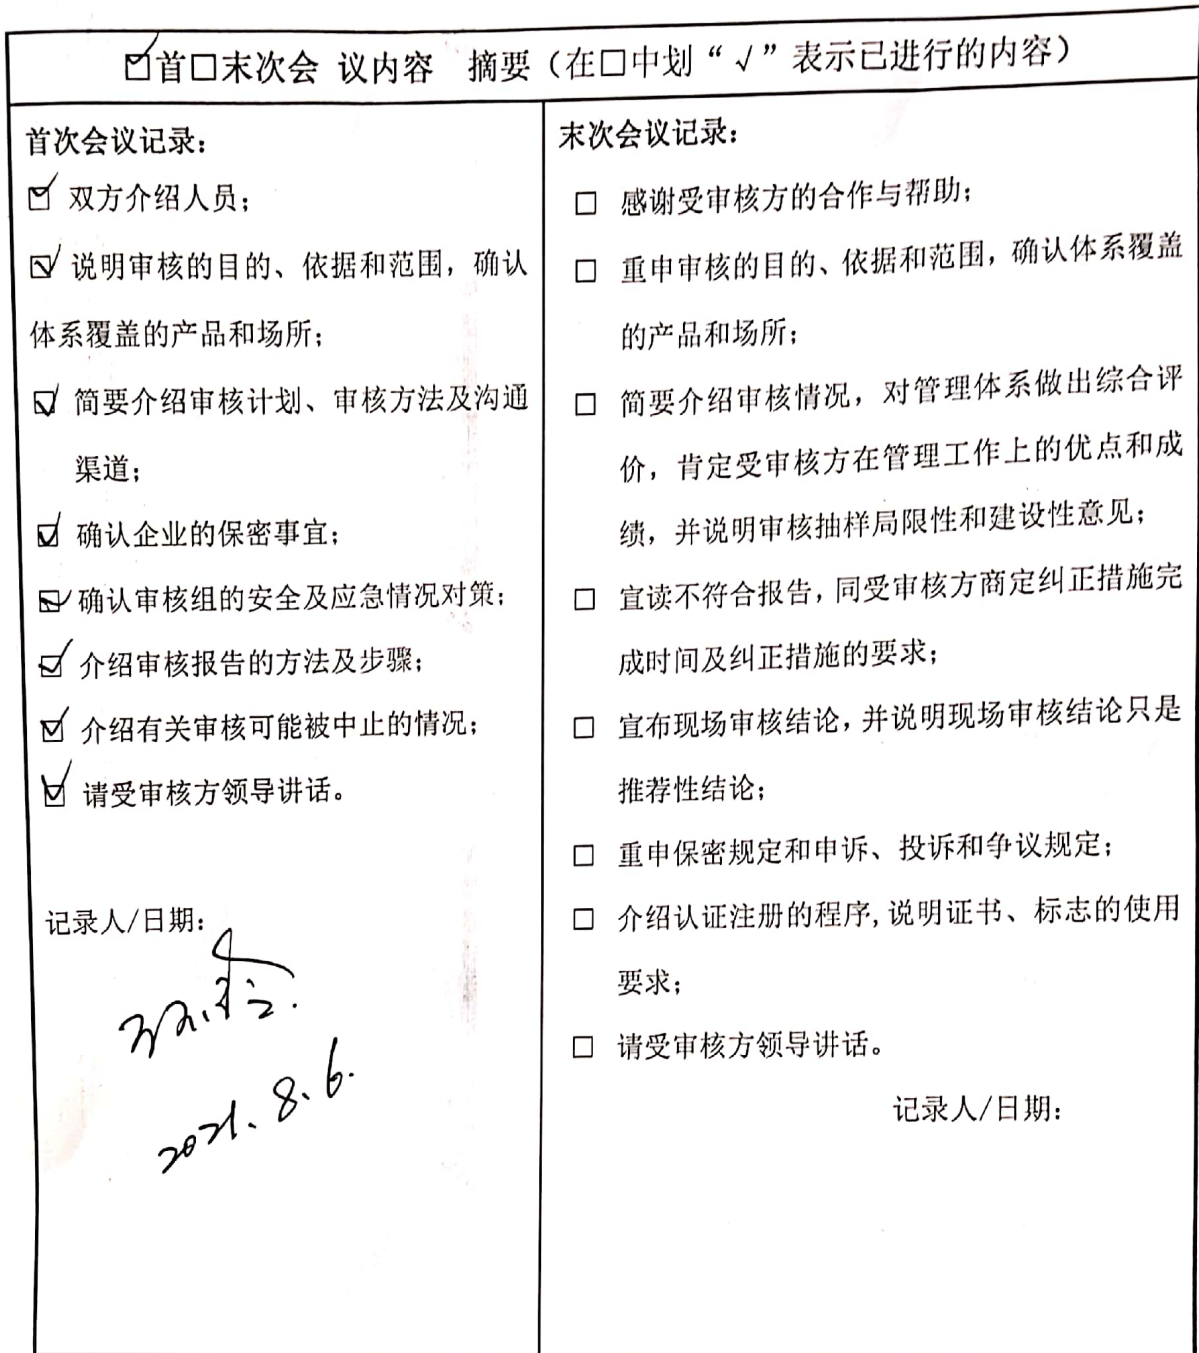 ☑首□末次会 议内容 摘要（在□中划“√”表示已进行的内容）
首次会议记录：
☑ 双方介绍人员；
☑ 说明审核的目的、依据和范围，确认
体系覆盖的产品和场所；
☑ 简要介绍审核计划、审核方法及沟通
渠道；
☑ 确认企业的保密事宜；
☑ 确认审核组的安全及应急情况对策；
☑ 介绍审核报告的方法及步骤；
☑ 介绍有关审核可能被中止的情况；
☑ 请受审核方领导讲话。
记录人/日期：
2021.8.6.
末次会议记录：
□ 感谢受审核方的合作与帮助；
□ 重申审核的目的、依据和范围，确认体系覆盖
的产品和场所；
□ 简要介绍审核情况，对管理体系做出综合评
价，肯定受审核方在管理工作上的优点和成
绩，并说明审核抽样局限性和建设性意见；
□ 宣读不符合报告，同受审核方商定纠正措施完
成时间及纠正措施的要求；
□ 宣布现场审核结论，并说明现场审核结论只是
推荐性结论；
□ 重申保密规定和申诉、投诉和争议规定；
□ 介绍认证注册的程序,说明证书、标志的使用
要求；
□ 请受审核方领导讲话。
记录人/日期：